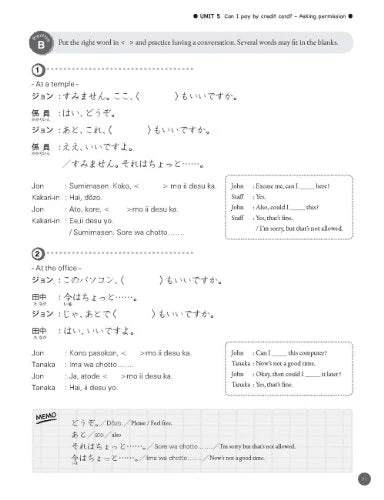 ● UNIT 5 Can I pay by credit card? – Asking permission ●
B
Put the right word in < > and practice having a conversation. Several words may fit in the blanks.
1
- At a temple -
ジョン：すみません。ここ、〈　　　〉もいいですか。
係員：はい、どうぞ。
かかりいん
ジョン：あと、これ、〈　　　〉もいいですか。
係員：ええ、いいですよ。
かかりいん
／すみません。それはちょっと……。
Jon : Sumimasen. Koko, < > mo ii desu ka.
Kakari-in : Hai, dōzo.
Jon : Ato, kore, < > mo ii desu ka.
Kakari-in : Ee,ii desu yo.
/ Sumimasen. Sore wa chotto…….
John : Excuse me, can I ____ here?
Staff : Yes.
John : Also, could I ____ this?
Staff : Yes, that's fine.
/ I'm sorry, but that's not allowed.
2
- At the office -
ジョン：このパソコン、〈　　　〉もいいですか。
田中：今はちょっと……。
たなか いま
ジョン：じゃ、あとで〈　　　〉もいいですか。
田中：はい、いいですよ。
たなか
Jon : Kono pasokon, < >mo ii desu ka.
Tanaka : Ima wa chotto…….
Jon : Ja, atode < >mo ii desu ka.
Tanaka : Hai, ii desu yo.
John : Can I ____ this computer?
Tanaka : Now's not a good time.
John : Okay, then could I ____ it later?
Tanaka : Yes, that's fine.
MEMO
どうぞ。／Dōzo.／Please / Feel free.
あと／ato／also
それはちょっと……。／Sore wa chotto…….／I'm sorry but that's not allowed.
今はちょっと……。／Ima wa chotto…….／Now's not a good time.
いま